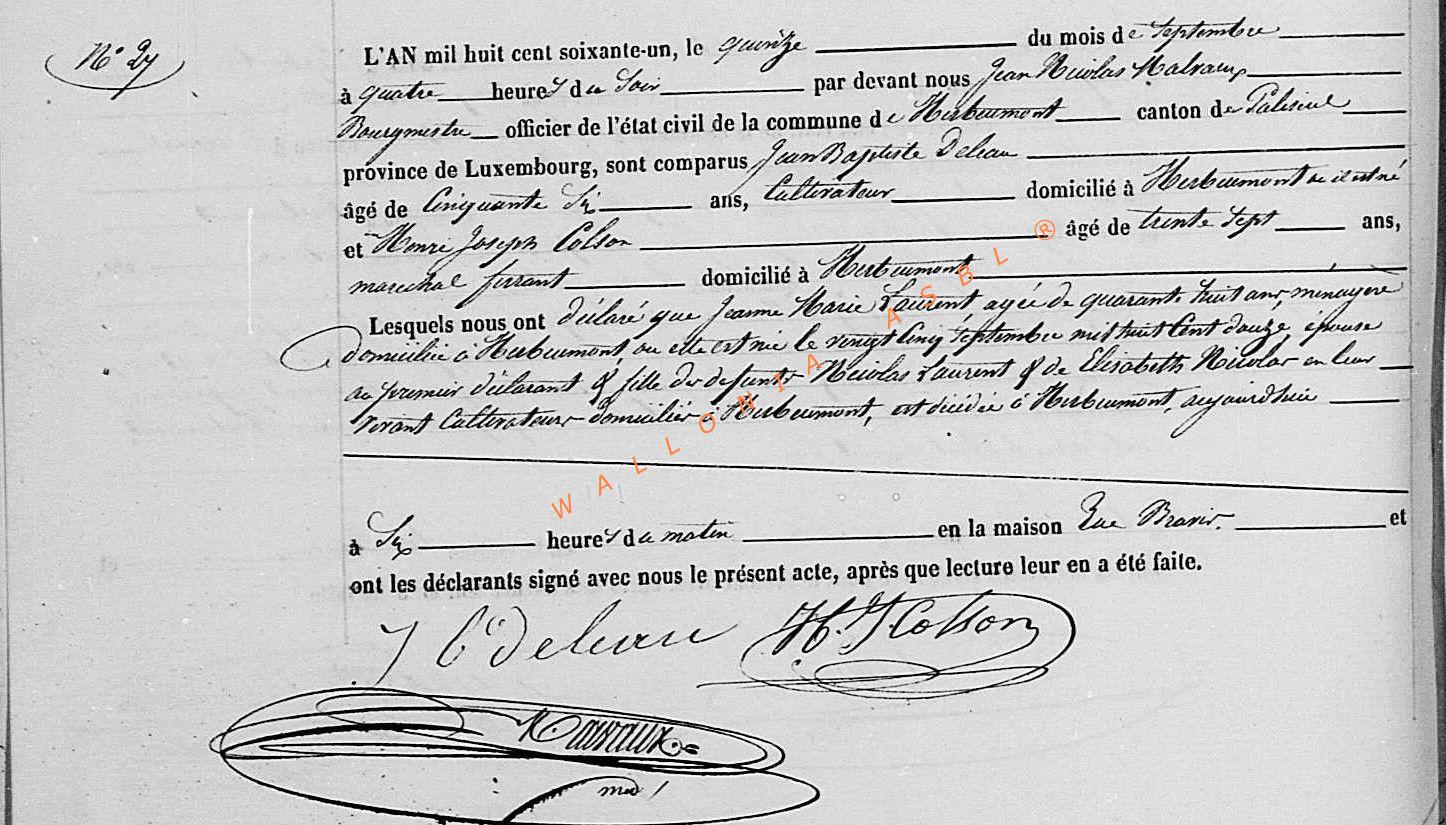 N° 27
L'AN mil huit cent soixante-un, le quinze du mois de Septembre
à quatre heures du Soir par devant nous Jean Nicolas Malvaux
Bourgmestre officier de l'état civil de la commune de Herbeumont canton de Paliseul
province de Luxembourg, sont comparus Jean Baptiste Deleau
âgé de Cinquante Six ans, Cultivateur domicilié à Herbeumont où il est né
et Henri Joseph Colson âgé de trente Sept ans,
marechal ferrant domicilié à Herbeumont
Lesquels nous ont déclaré que Jeanne Marie Laurent, agée de quarante huit ans, ménagère
domiciliée à Herbeumont, où elle est née le vingt Cinq Septembre mil huit Cent douze, épouse
au premier déclarant & fille des defunts Nicolas Laurent & de Elisabeth Nicolas en leur
vivant Cultivateurs domiciliés à Herbeumont, est décédée à Herbeumont, aujourd'hui
à Six heures du matin en la maison Rue et
ont les déclarants signé avec nous le présent acte, après que lecture leur en a été faite.
J B Deleau H. J. Colson
Malvaux
WALLONIA ASBL ®